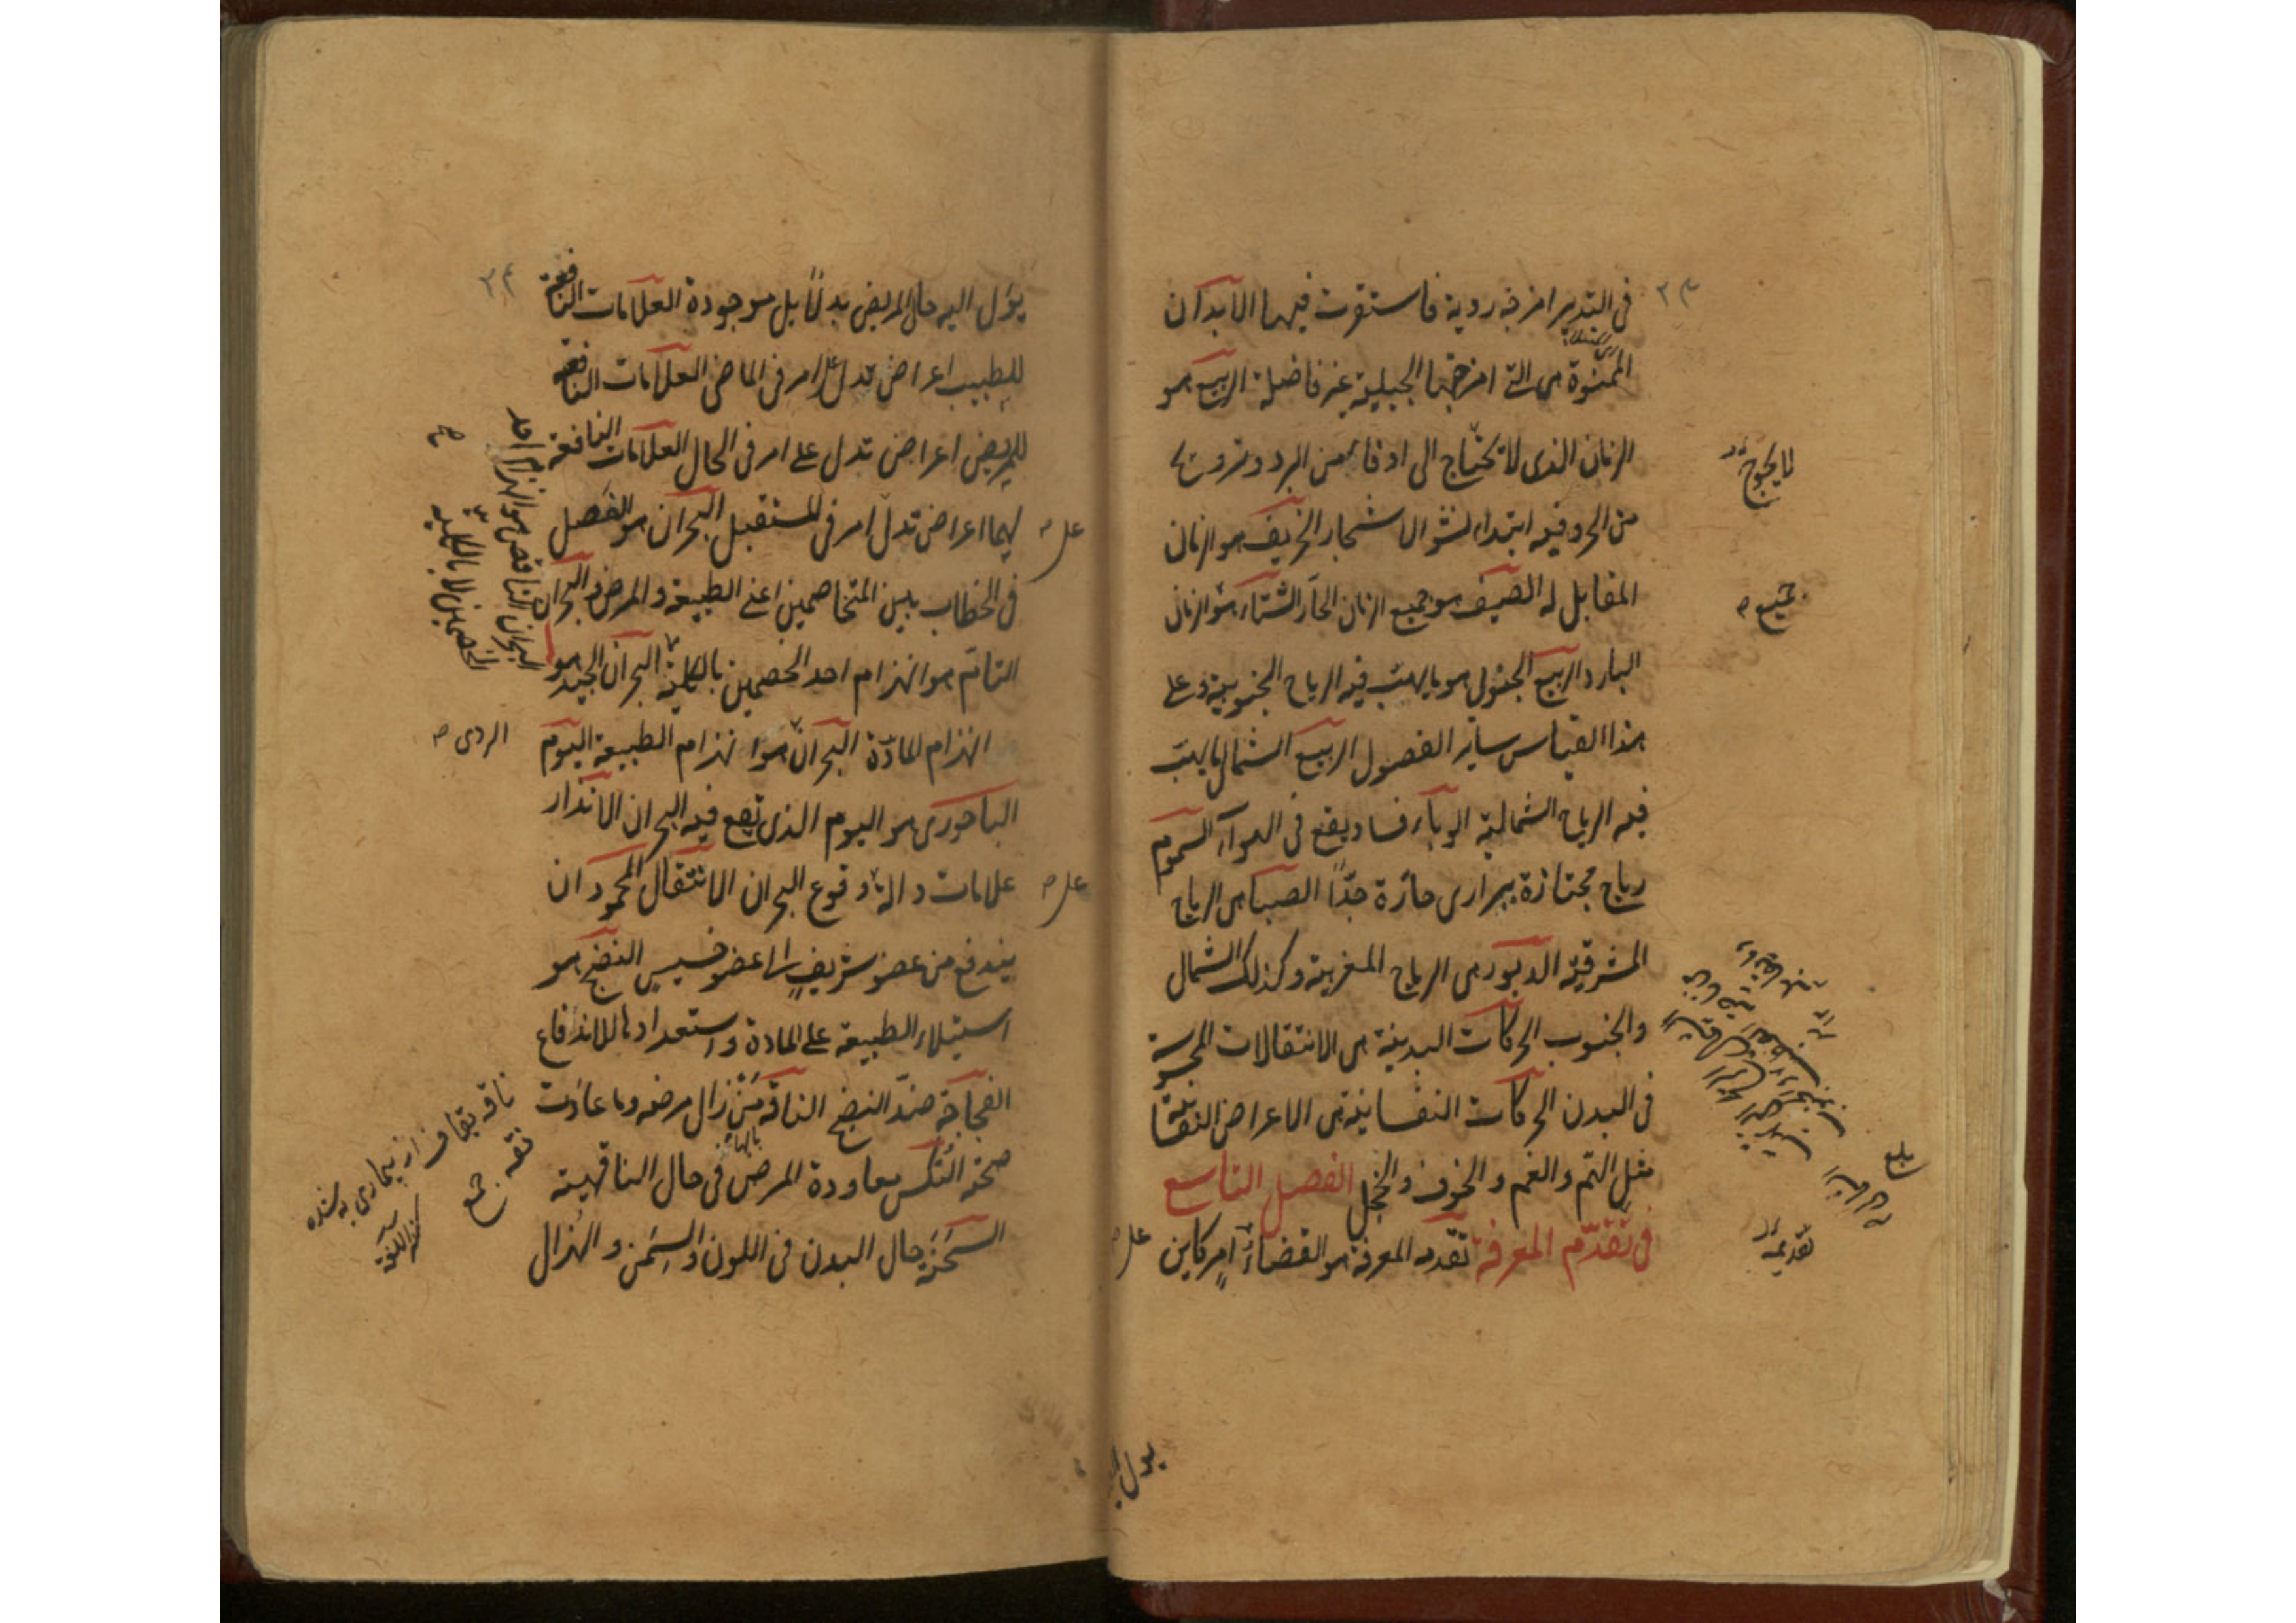 ٢٣
فى التدبير امزجة ردية فاستقرت فيها الابدان
الممنوة هى التى امزجتها الجبلية غير فاضلة الربيع هو
الزمان الذى لا تحتاج الى ادفاء من البرد وترويح
من الحر وفيه ابتداء نشو الاشجار الخريف هو الزمان
المقابل له الصيف هو جميع الزمان الحار الشتاء هو الزمان
البارد الربيع الجنوبى هو ما يهب فيه الرياح الجنوبية وعلى
هذا القياس ساير الفصول الربيع الشمالى ما يهب
فيه الرياح الشمالية الوباء فساد يقع فى الهواء السموم
رياح مجتازة ببرارى حارة جدّاً الصبا هى الرياح
المشرقية الدبور هى الرياح المغربية وكذلك الشمال
والجنوب الحركات البدنية هى الانتقالات المحسوسة
فى البدن الحركات النفسانية هى الاعراض النفسانية
مثل الهمّ والغم والخوف والخجل الفصل التاسع
فى تقدّم المعرفة تقدمه المعرفة هو القضاء امر كاين
على
لا يحوج
جميع
تقدمة
يؤل
٢٤
يؤل اليه حال المريض بدلاً بل موجودة العلامات النافعة
للطبيب اعراض تدل على امر فى الماضى العلامات النافعة
للمريض اعراض تدل على امر فى الحال العلامات النافعة
لهما اعراض تدلّ امر فى المستقبل البحران هو الفصل
فى الخطاب بين المتخاصمين اعنى الطبيعة والمرض والبحران
التامّ هو انهزام احد الخصمين بالكلية البحران الجيد هو
انهزام المادّة البحران هو انهزام الطبيعة اليوم
الباحورى هو اليوم الذى يقع فيه البحران الانذار
علامات دالة وقوع البحران الانتقال المحمود ان
يندفع من عضو شريفٍ الى عضو خسيسٍ النضج هو
استيلاء الطبيعة على المادة واستعدادها للاندفاع
الفجاجة ضدّ النضج الناقه مَنْ زال مرضه وما عادت
صحته النكس معاودة المرض فى حال الناقهية
السَحنَة حال البدن فى اللون والسِمَن والهُزال
على
على
البحران الناقص هو انهزام احد
الخصمين لا بالكلية
صح
الردى
ناقه بقاف از بيمارى به شده
نقه جمع
كنز اللغة